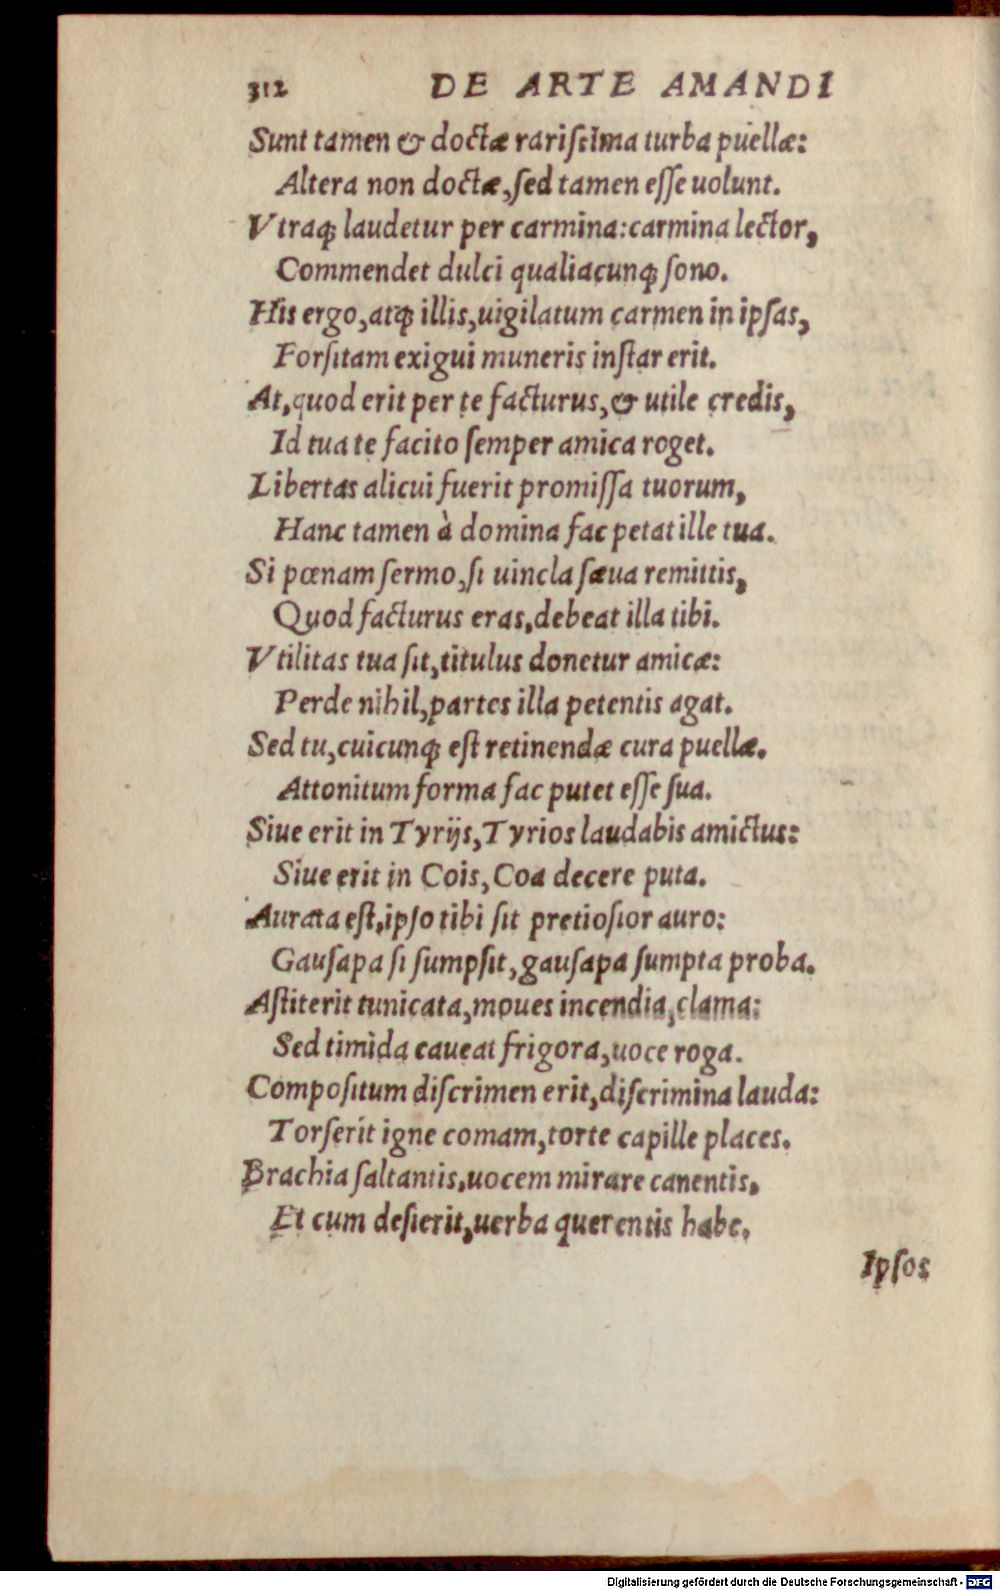 312 DE ARTE AMANDI
Sunt tamen & doctæ rariſsima turba puellæ:
Altera non doctæ, ſed tamen eſſe uolunt.
Vtraq; laudetur per carmina: carmina lector,
Commendet dulci qualiacunq; ſono.
His ergo, atq; illis, uigilatum carmen in ipſas,
Forſitam exigui muneris inſtar erit.
At, quod erit per te facturus, & utile credis,
Id tua te facito ſemper amica roget.
Libertas alicui fuerit promiſſa tuorum,
Hanc tamen à domina fac petat ille tua.
Si pœnam ſermo, ſi uincla ſæua remittis,
Quod facturus eras, debeat illa tibi.
Vtilitas tua ſit, titulus donetur amicæ:
Perde nihil, partes illa petentis agat.
Sed tu, cuicunq; eſt retinendæ cura puellæ.
Attonitum forma fac putet eſſe ſua.
Siue erit in Tyrijs, Tyrios laudabis amictus:
Siue erit in Cois, Coa decere puta.
Aurata eſt, ipſo tibi ſit pretioſior auro:
Gauſapa ſi ſumpſit, gauſapa ſumpta proba.
Aſtiterit tunicata, moues incendia, clama:
Sed timida caueat frigora, uoce roga.
Compoſitum diſcrimen erit, diſcrimina lauda:
Torſerit igne comam, torte capille places.
Brachia ſaltantis, uocem mirare canentis,
Et cum deſierit, uerba querentis habe.
Ipſos
Digitalisierung gefördert durch die Deutsche Forschungsgemeinschaft - DFG